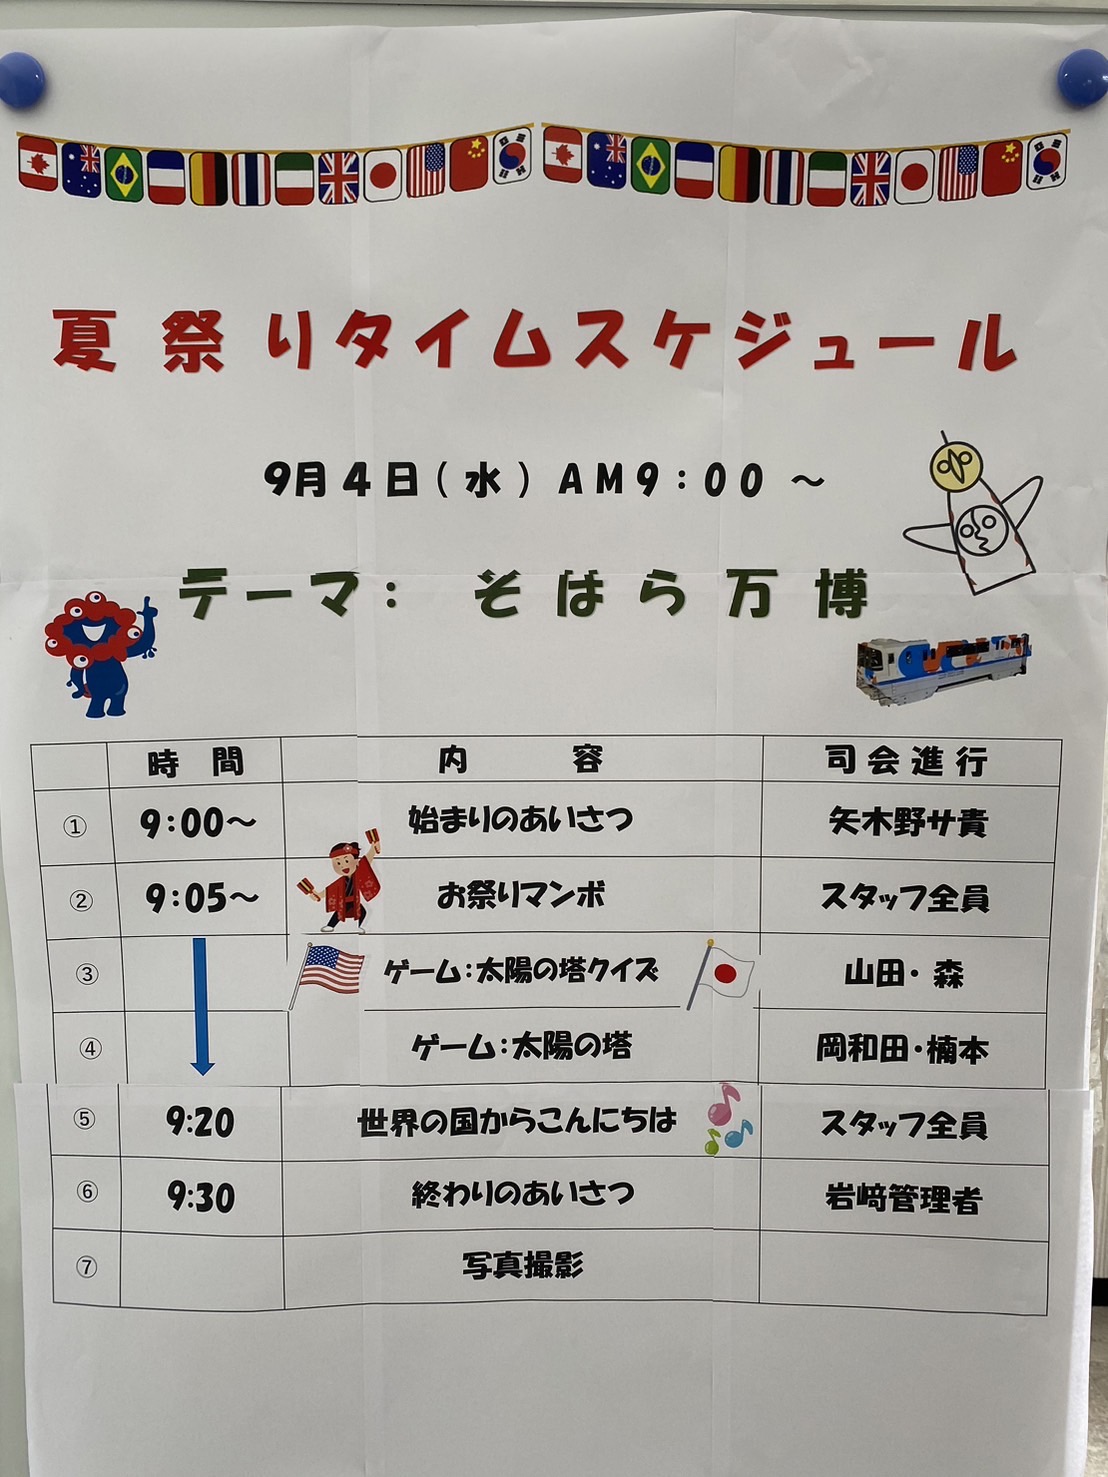 夏祭りタイムスケジュール
9月4日(水) AM9:00 ~
テーマ: そはら万博
時間 内容 司会進行
① 9:00~ 始まりのあいさつ 矢木野サ責
② 9:05~ お祭りマンボ スタッフ全員
③ ゲーム:太陽の塔クイズ 山田・森
④ ゲーム:太陽の塔 岡和田・楠本
⑤ 9:20 世界の国からこんにちは スタッフ全員
⑥ 9:30 終わりのあいさつ 岩﨑管理者
⑦ 写真撮影